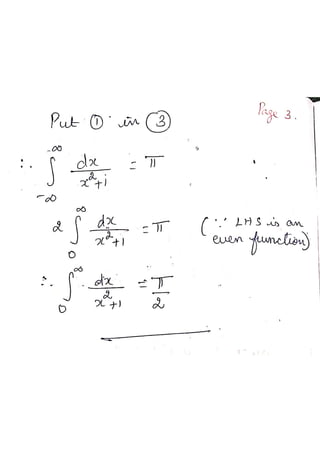 Page 3.
Put ① in ③
∴ ∫_{-∞}^{-∞} dx/(x²+i) = π
2 ∫_0^∞ dx/(x²+1) = π (∵ LHS is an
even function)
∴ ∫_0^∞ dx/(x²+1) = π/2